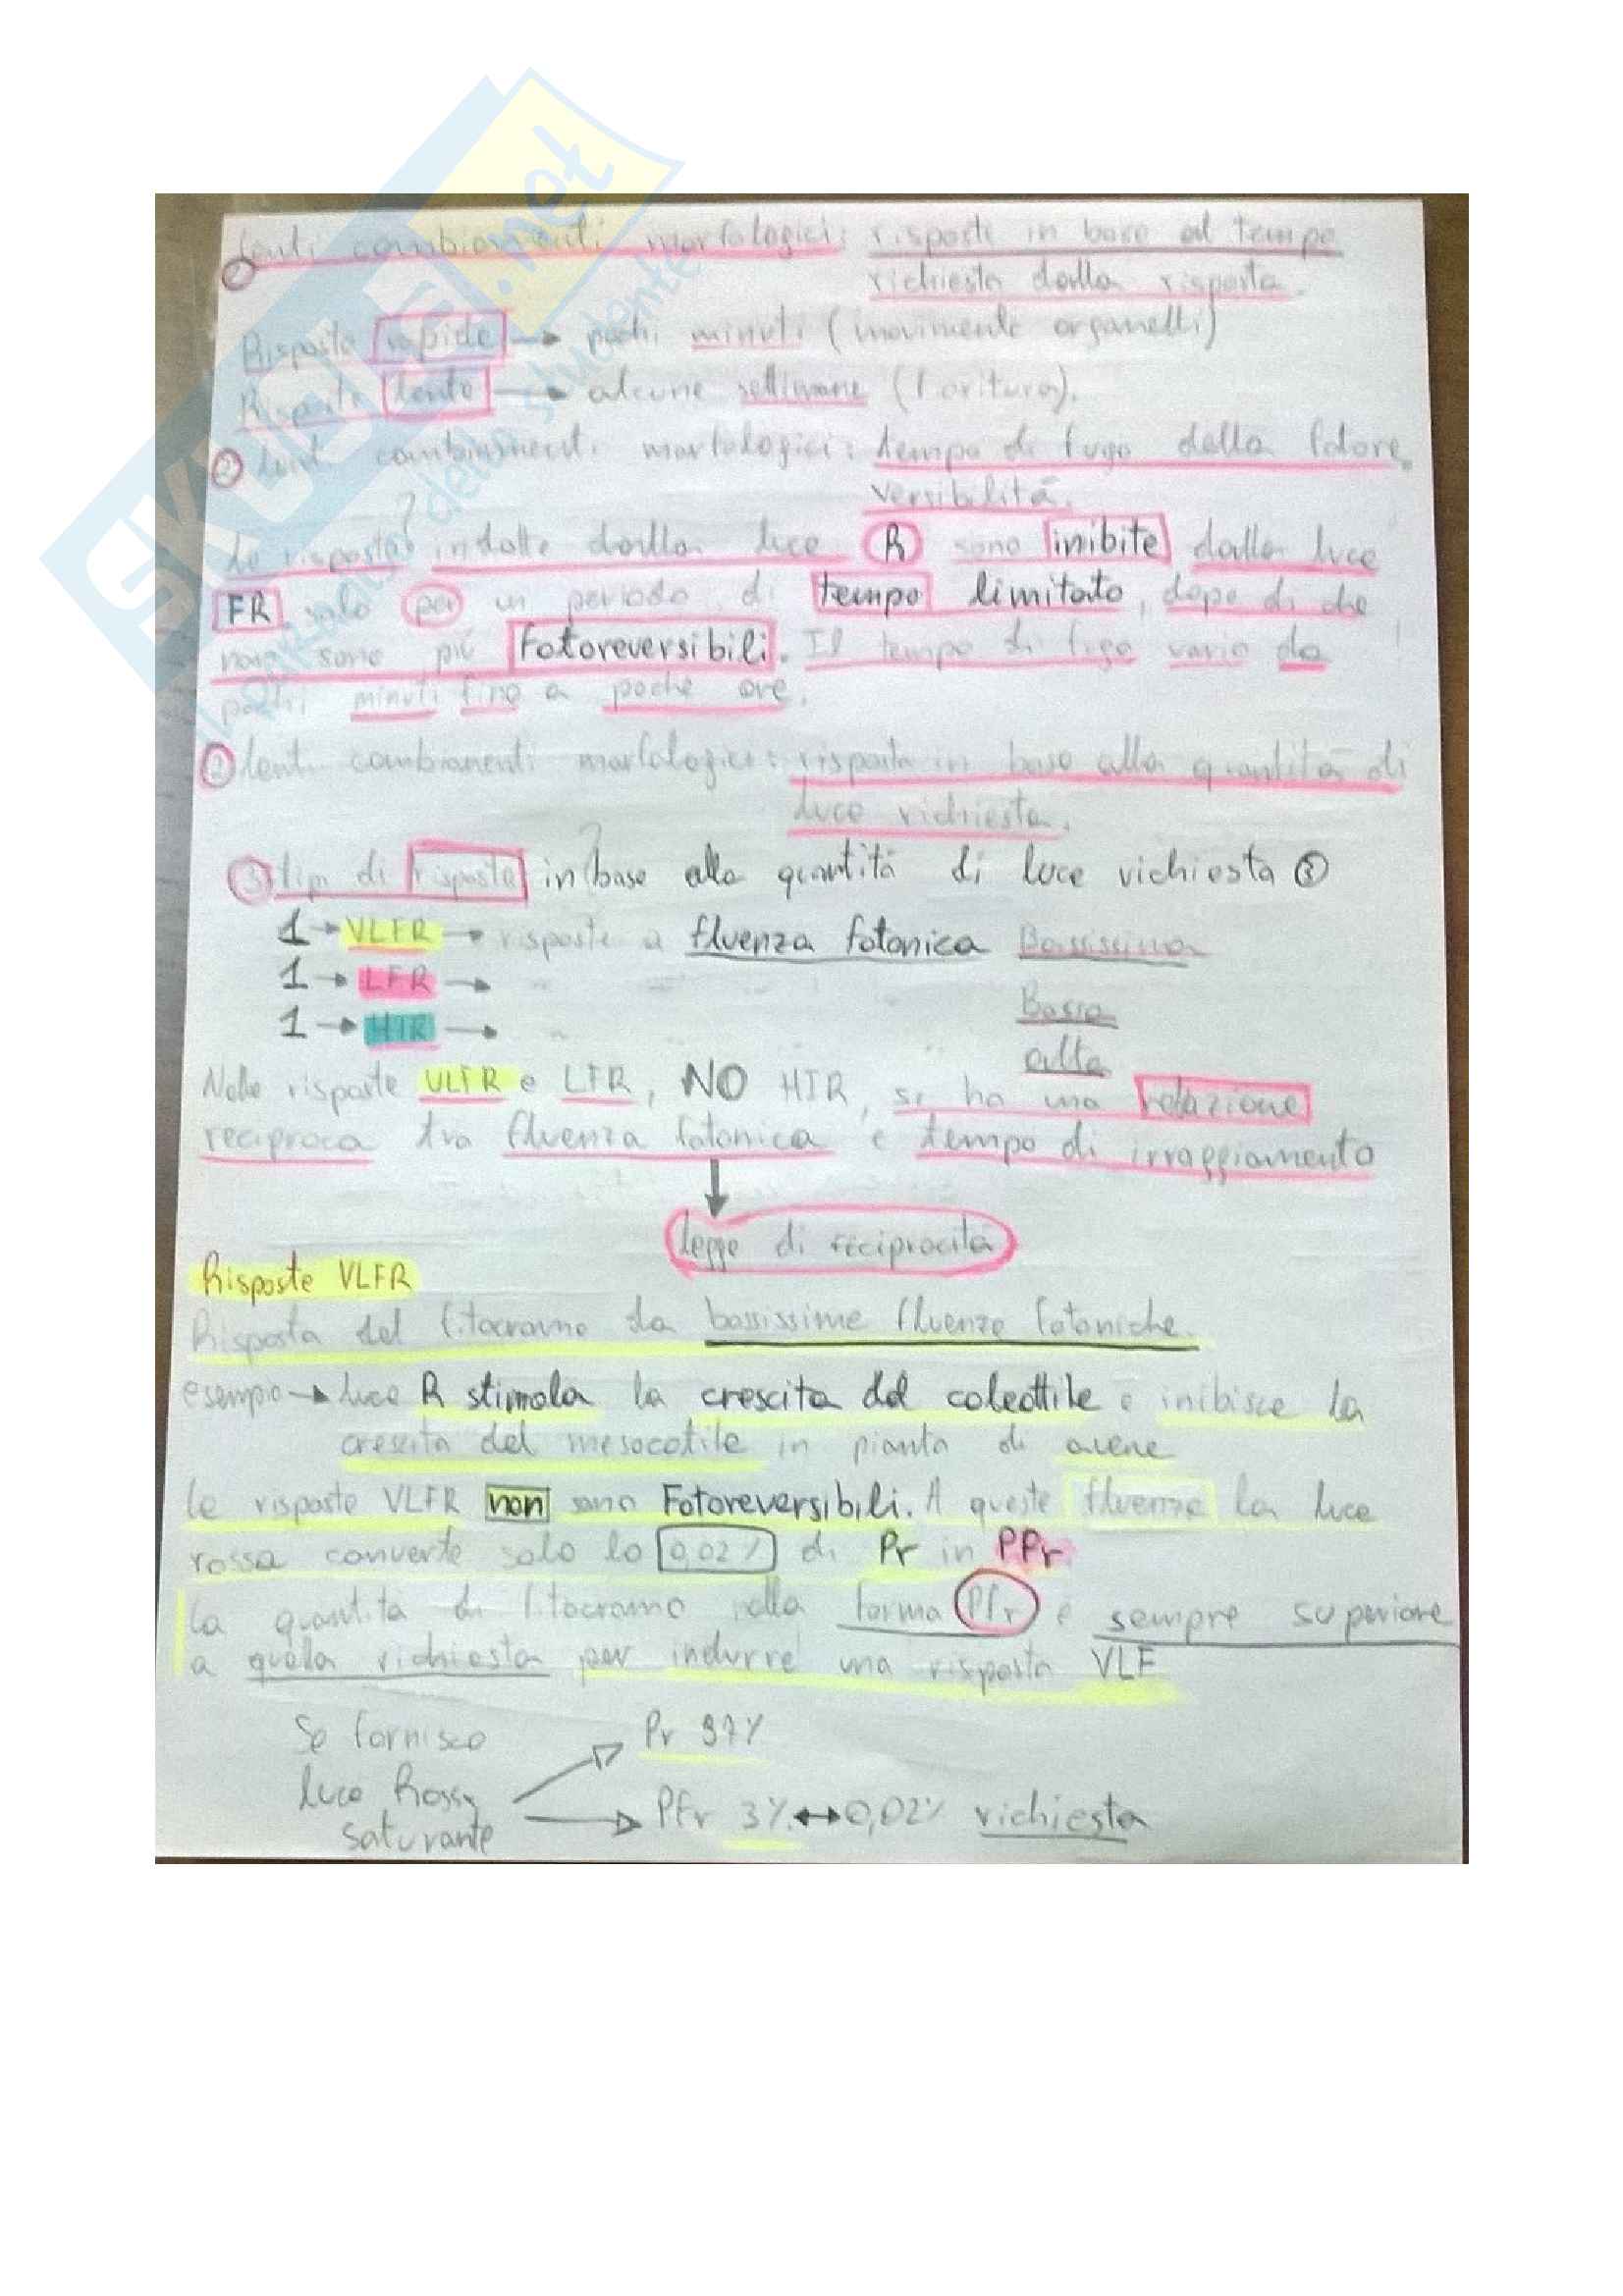 lenti cambiamenti morfologici: risposte in base al tempo
② richiesto dalla risposta.
Risposte rapide → pochi minuti (movimento organelli)
Risposte lente → alcune settimane (fioritura).
② lenti cambiamenti morfologici: tempo di fuga dalla fotore
versibilità.
?
Le risposte indotte dalla luce R sono inibite dalla luce
FR solo per un periodo di tempo limitato, dopo di che
non sono più Fotoreversibili. Il tempo di fuga varia da
pochi minuti fino a poche ore.
② lenti cambiamenti morfologici: risposta in base alla quantità di
luce richiesta.
?
③ tipi di risposte in base alla quantità di luce richiesta ③
1 → VLFR → risposte a fluenza fotonica Bassissima
1 → LFR → " Bassa
1 → HIR → " " alta
Nelle risposte VLFR e LFR, NO HIR, si ha una relazione
reciproca tra fluenza fotonica e tempo di irraggiamento
legge di reciprocità
Risposte VLFR
Risposta del fitocromo da bassissime fluenze fotoniche.
esempio → luce R stimola la crescita del coleottile e inibisce la
crescita del mesocotile in pianta di avene
le risposte VLFR non sono Fotoreversibili. A queste fluenze la luce
rossa converte solo lo 0,02% di Pr in PPr
La quantità di fitocromo nella forma Pfr è sempre superiore
a quella richiesta per indurre una risposta VLF
Se fornisco Pr 97%
luce Rossa
saturante PFr 3% ↔ 0,02% richiesta
SKUOLA.net
il portale dello studente